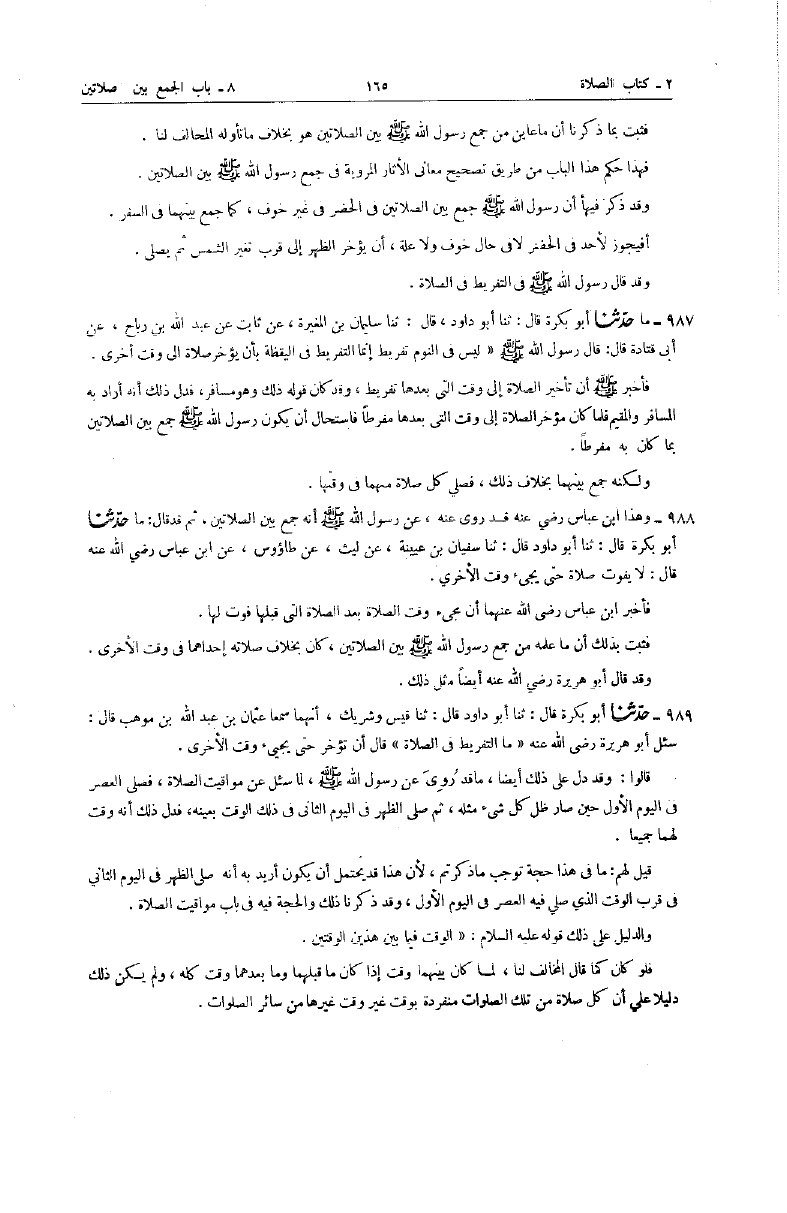 ٢ ـ كتاب الصلاة ١٦٥ ٨ ـ باب الجمع بين صلاتين
فثبت بما ذكرنا أن ماعاين من جمع رسول الله ﷺ بين الصلاتين هو بخلاف ماتأوله المخالف لنا .
فهذا حكم هذا الباب من طريق تصحيح معانى الأثار المروية فى جمع رسول الله ﷺ بين الصلاتين .
وقد ذكر فيها أن رسول الله ﷺ جمع بين الصلاتين فى الحضر فى غير خوف ، كما جمع بينهما فى السفر .
أفيجوز لأحد فى الحضر لافى حال خوف ولا علة ، أن يؤخر الظهر إلى قرب تغير الشمس ثم يصلى .
وقد قال رسول الله ﷺ فى التفريط فى الصلاة .
٩٨٧ ـ ما حدثنا أبو بكرة قال : ثنا أبو داود ، قال : ثنا سليمان بن المغيرة ، عن ثابت عن عبد الله بن رباح ، عن
أبى قتادة قال: قال رسول الله ﷺ « ليس فى النوم تفريط إنما التفريط فى اليقظة بأن يؤخر صلاة الى وقت أخرى .
فأخبر ﷺ أن تأخير الصلاة إلى وقت التى بعدها تفريط ، وقد كان قوله ذلك وهو مسافر، فدل ذلك أنه أراد به
المسافر والمقيم فلما كان مؤخر الصلاة إلى وقت التى بعدها مفرطاً فاستحال أن يكون رسول الله ﷺ جمع بين الصلاتين
بما كان به مفرطاً .
ولكنه جمع بينهما بخلاف ذلك ، فصلي كل صلاة منهما فى وقتها .
٩٨٨ ـ وهذا ابن عباس رضي عنه قد روى عنه ، عن رسول الله ﷺ أنه جمع بين الصلاتين . ثم قدقال: ما حدثنا
أبو بكرة قال : ثنا أبو داود قال : ثنا سفيان بن عيينة ، عن ليث ، عن طاؤوس ، عن ابن عباس رضي الله عنه
قال : لا يفوت صلاة حتى يجىء وقت الأخري .
فأخبر ابن عباس رضى الله عنهما أن مجىء وقت الصلاة بعد الصلاة التى قبلها فوت لها .
فثبت بذلك أن ما علمه من جمع رسول الله ﷺ بين الصلاتين ، كان بخلاف صلاته إحداهما فى وقت الأخرى .
وقد قال أبو هريرة رضي الله عنه أيضاً مثل ذلك .
٩٨٩ ـ حدثنا أبو بكرة قال : ثنا أبو داود قال : ثنا قيس وشريك ، أنهما سمعا عثمان بن عبد الله بن موهب قال :
سئل أبو هريرة رضى الله عنه « ما التفريط فى الصلاة » قال أن تؤخر حتى يجيىء وقت الأخرى .
قالوا : وقد دل على ذلك أيضا ، ماقد رُوىَ عن رسول الله ﷺ ، لما سئل عن مواقيت الصلاة ، فصلى العصر
فى اليوم الأول حين صار ظل كل شىء مثله ، ثم صلى الظهر فى اليوم الثانى فى ذلك الوقت بعينه، فدل ذلك أنه وقت
لهما جميعا .
قيل لهم: ما فى هذا حجة توجب ماذكرتم ، لأن هذا قد يحتمل أن يكون أريد به أنه صلى الظهر فى اليوم الثاني
فى قرب الوقت الذي صلي فيه العصر فى اليوم الأول ، وقد ذكرنا ذلك والحجة فيه فى باب مواقيت الصلاة .
والدليل على ذلك قوله عليه السلام : « الوقت فيما بين هذين الوقتين .
فلو كان كما قال المخالف لنا ، لما كان بينهما وقت إذا كان ما قبلهما وما بعدهما وقت كله ، ولم يكن ذلك
دليلا علي أن كل صلاة من تلك الصلوات منفردة بوقت غير وقت غيرها من سائر الصلوات .